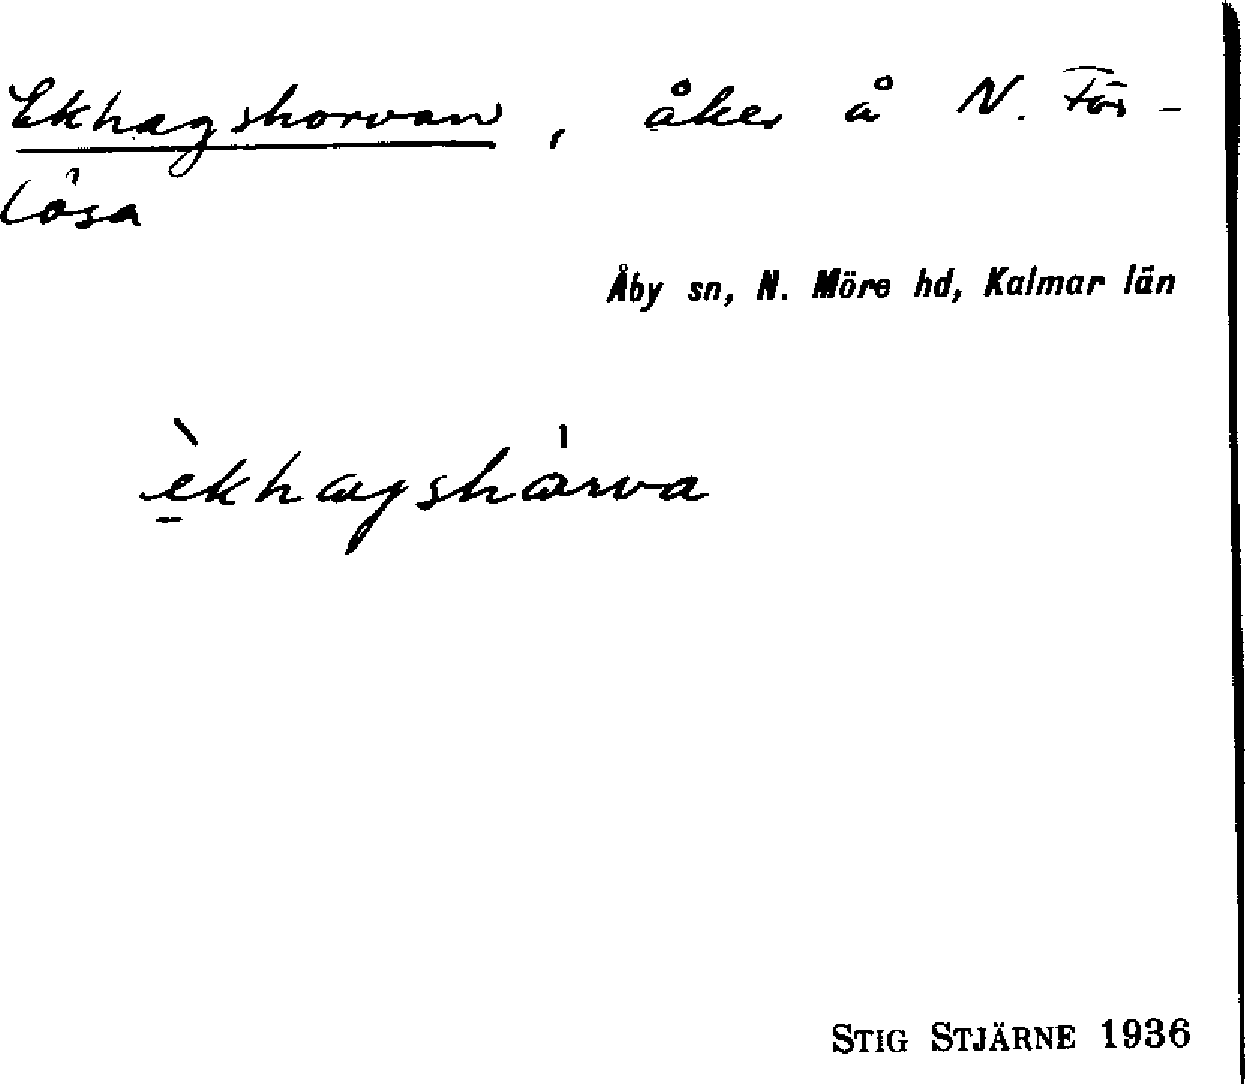 Ekhagshorvan, åker å N. För-
lösa
Åby sn, N. Möre hd, Kalmar län
èkhagshårva
STIG STJÄRNE 1936